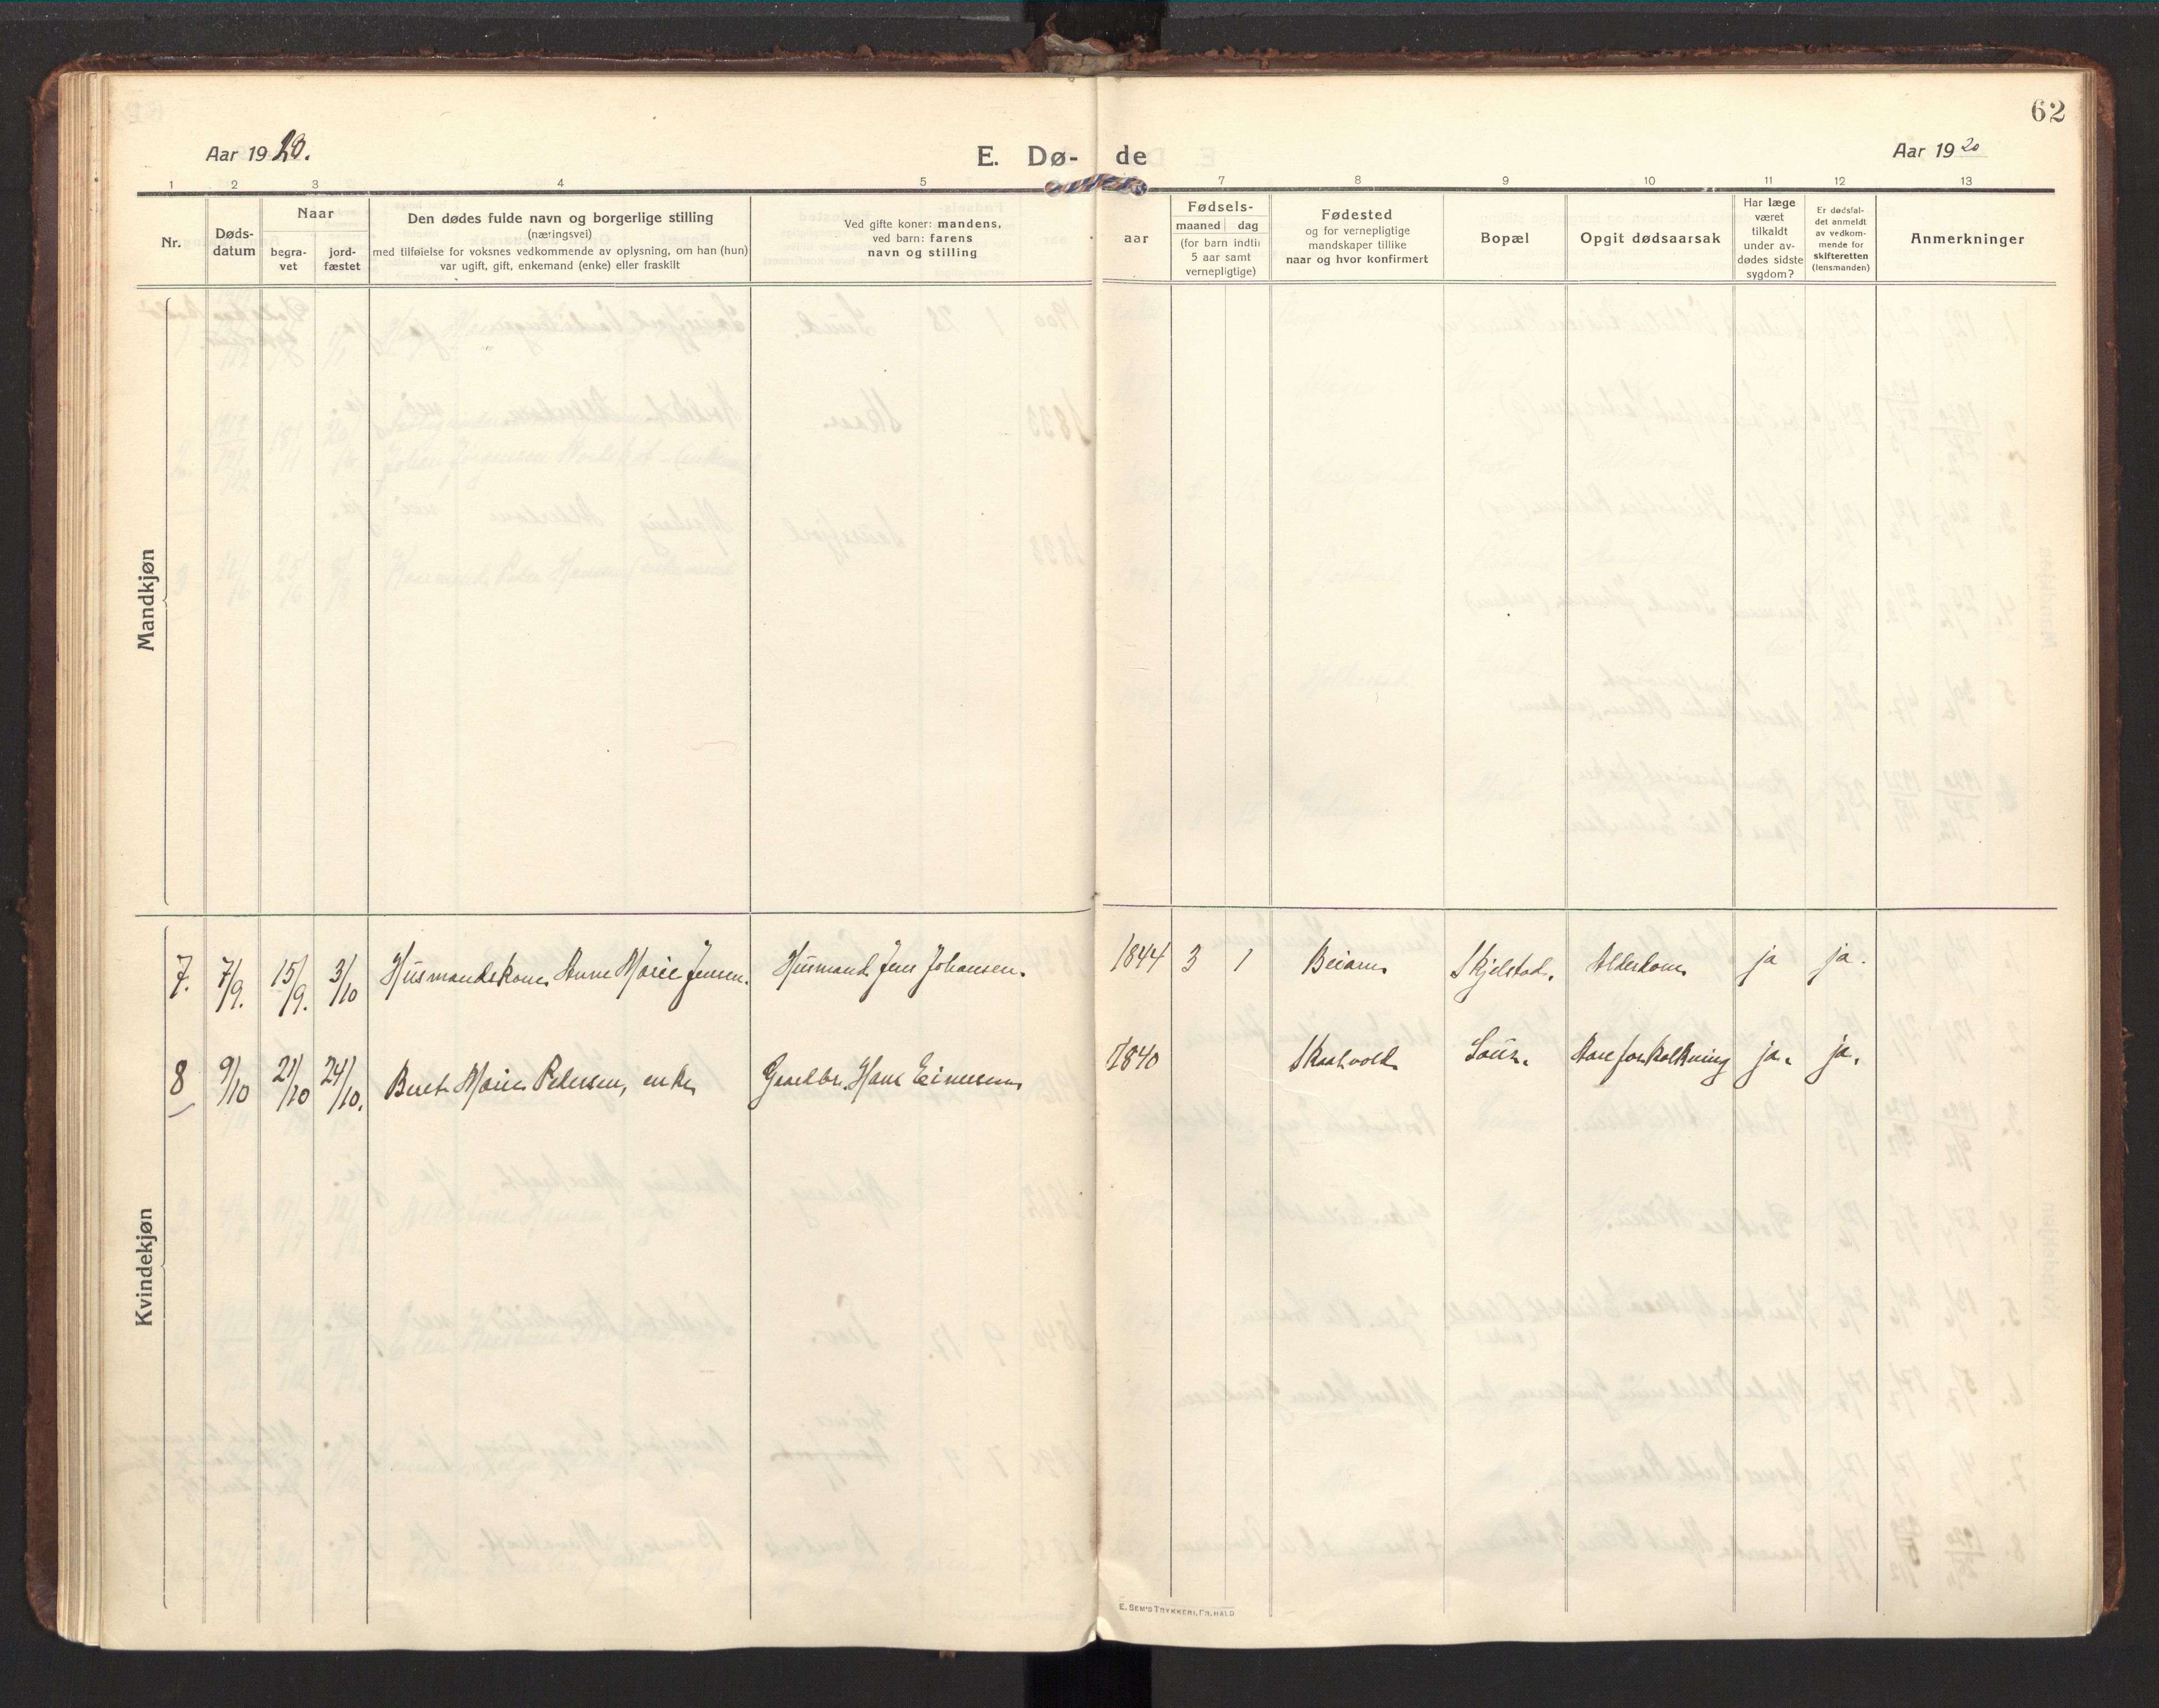 62
Aar 1920.
E. Dø- de
Aar 1920
1 2 3 4 5 7 8 9 10 11 12 13
Nr.
Døds-
datum
Naar
begra-
vet
jord-
fæstet
Den dødes fulde navn og borgerlige stilling
(næringsvei)
med tilføielse for voksnes vedkommende av oplysning, om han (hun)
var ugift, gift, enkemand (enke) eller fraskilt
Ved gifte koner: mandens,
ved barn: farens
navn og stilling
Fødsels-
aar
maaned dag
(for barn indtil
5 aar samt
vernepligtige)
Fødested
og for vernepligtige
mandskaper tillike
naar og hvor konfirmert
Bopæl
Opgit dødsaarsak
Har læge
været
tilkaldt
under av-
dødes sidste
sygdom?
Er dødsfal-
det anmeldt
av vedkom-
mende for
skifteretten
(lensmanden)
Anmerkninger
Mandkjøn
Kvindekjøn
7. 7/9. 15/9. 3/10 Husmandskone Anne Marie Jensen. Husmand Jens Johansen. 1844 3 1 Beiarn Skjelstad. Alderdom ja ja.
8 9/10 21/10 24/10. Berit Marie Pedersen, enke Gaardbr. Hans 1840 Skaalvold ja. ja.
E. SEM'S TRYKKERI, FR. HALD